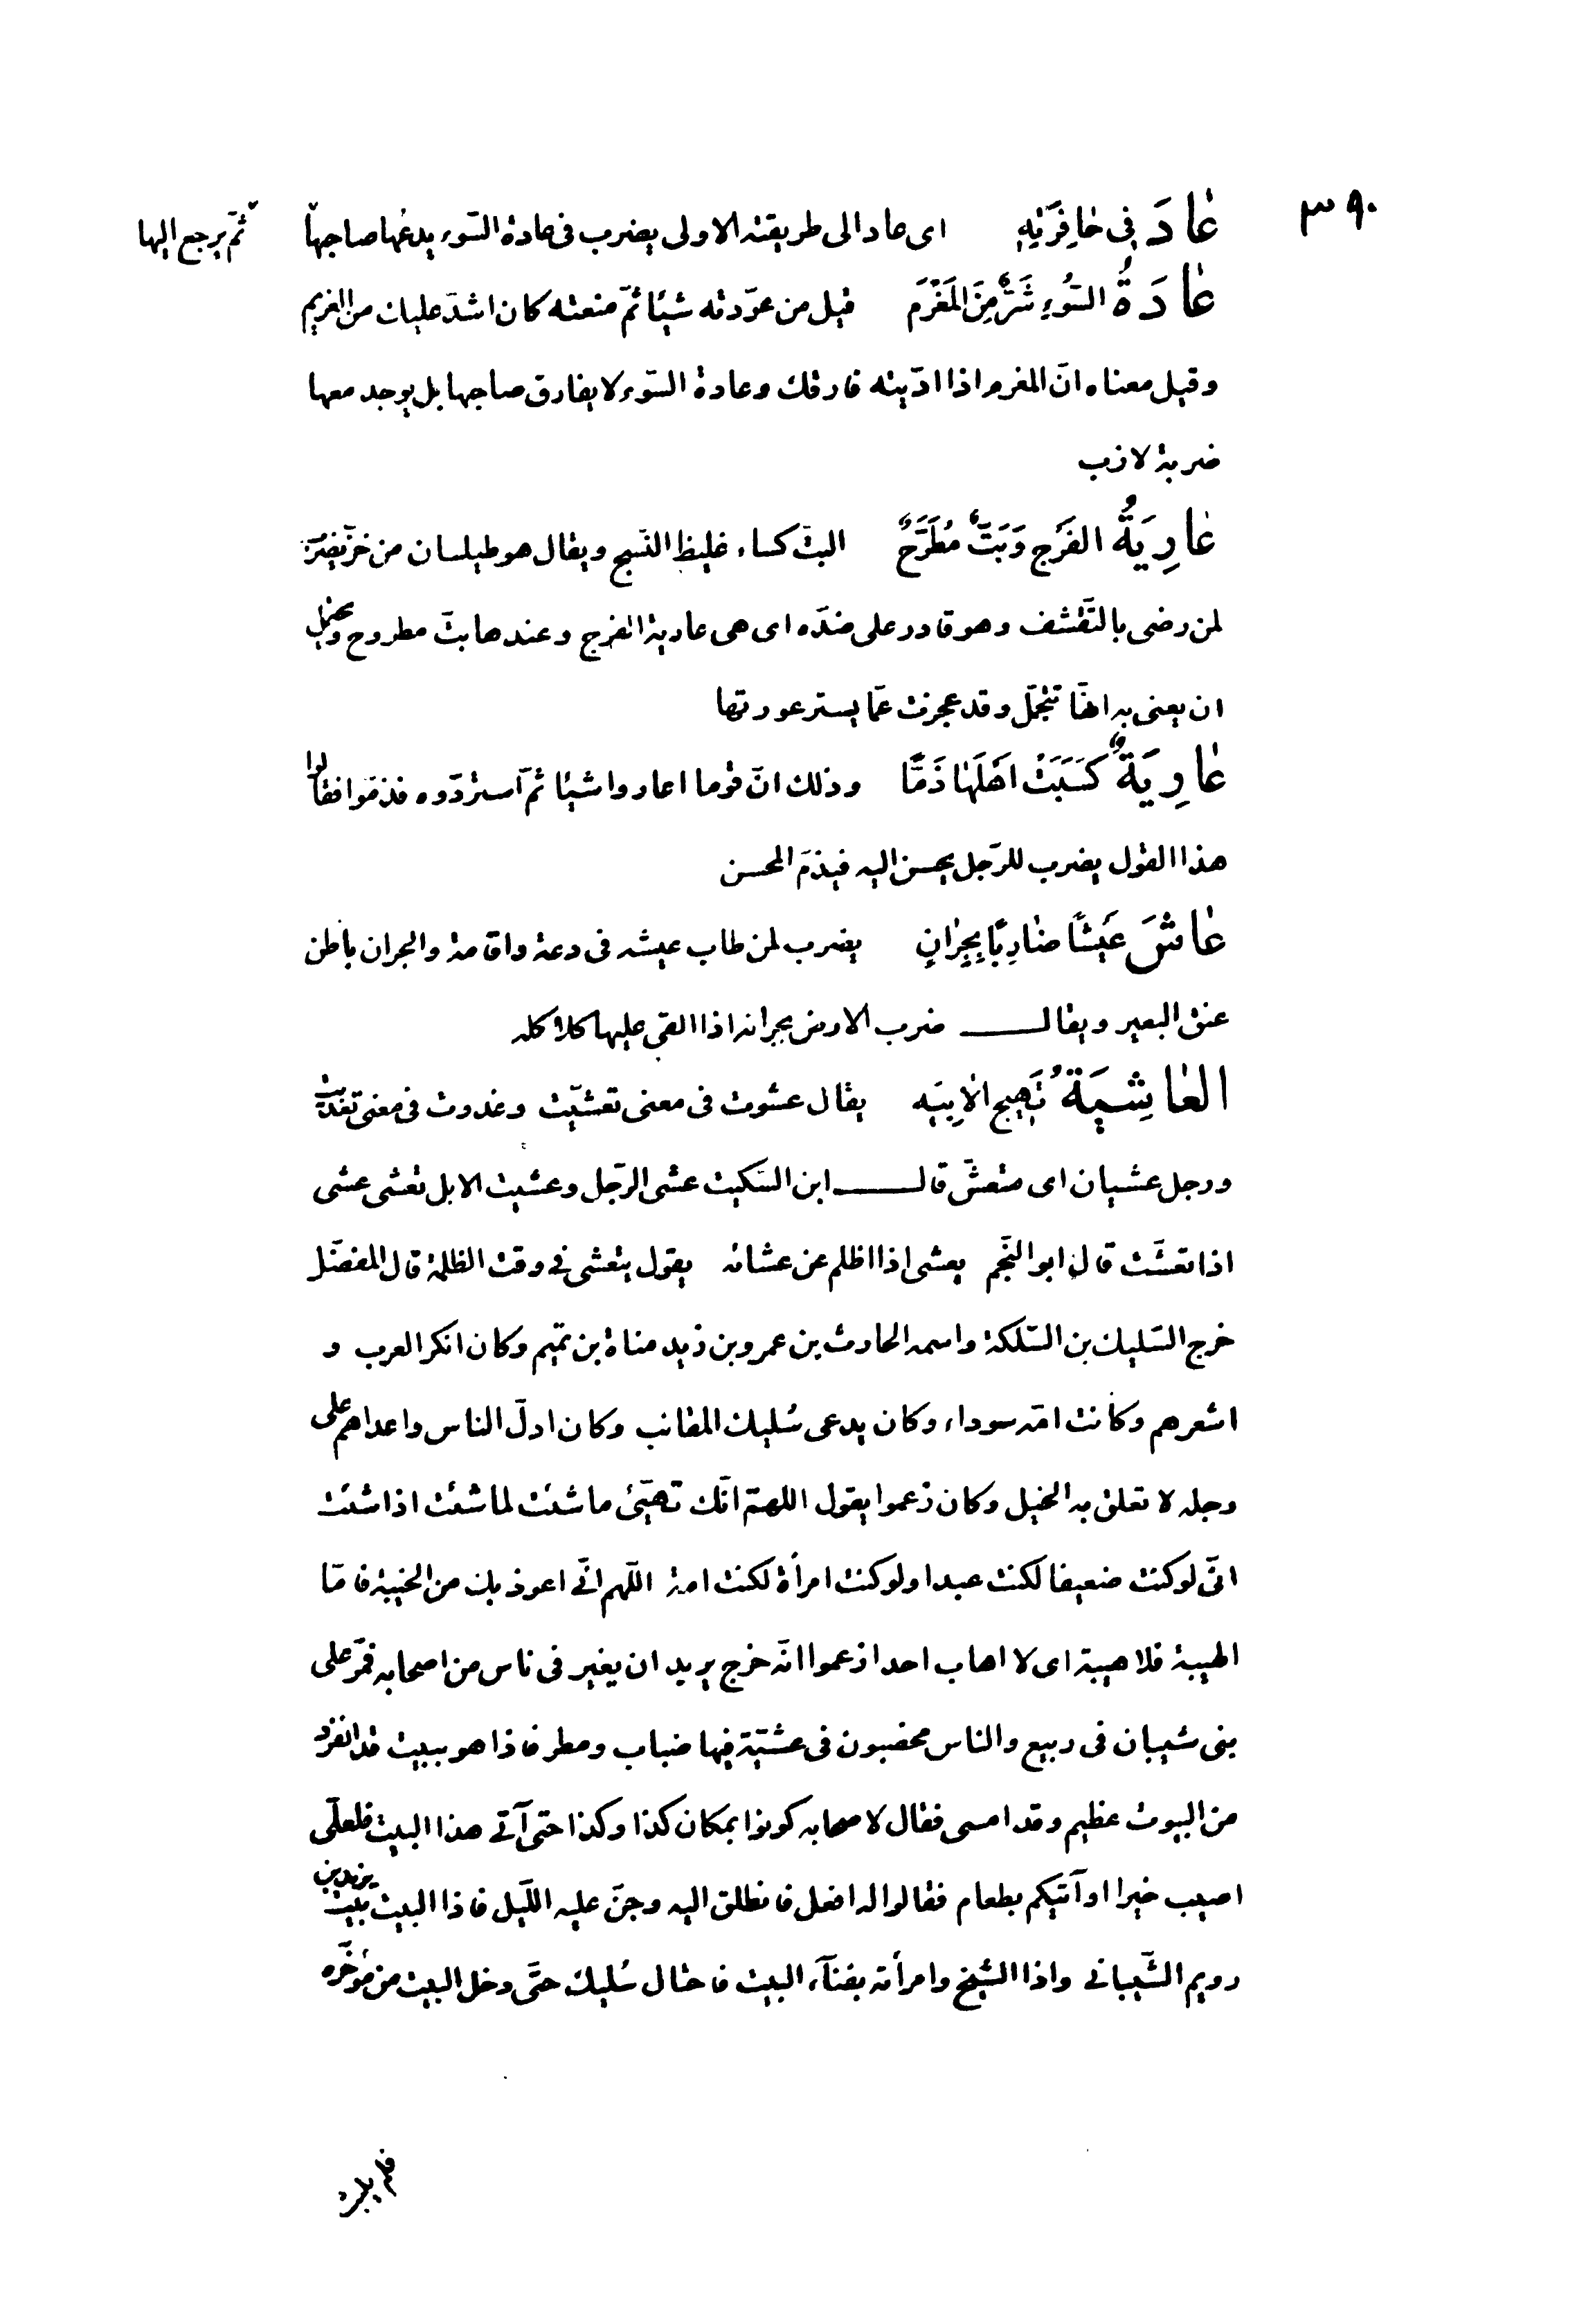 ٣٩٠
عَادَ فِى حَافِرَتِهِ اى عاد الى طريقته الاولى يضرب فى عادة السّوء يدعها صاحبها ثمّ يرجع اليها
عَادَةُ السَّوْءِ شَرٌّ مِنَ المَغْرَمِ قيل من عوّدته شيئا ثمّ منعته كان اشدّ عليك من الغريم
وقيل معناه انّ المغرم اذا ادّيته فارقك وعادة السّوء لا يفارق صاحبها بل يوجد معها
ضربة لازب
عَارِيَةُ الفَرْجِ وَبَتٌّ مُطَرَّحٌ البتّ كساء غليظ النّسج ويقال هو طيلسان من خزّ يضرب
لمن رضى بالتّقشف وهو قادر على ضدّه اى هى عارية الفرج وعندها بتّ مطروح ويحتمل
ان يعنى به انّها تتجمّل وقد عجزت عمّا يستر عورتها
عَارِيَةٌ كَسَبَتْ اَهْلَهَا ذَمًّا وذلك انّ قوما اعاروا شيئا ثمّ استردّوه فذمّوا فقالوا
هذا القول يضرب للرّجل يحسن اليه فيذمّ المحسن
عَاشَ عَيْشًا ضَارِبًا بِجِرَانٍ يضرب لمن طاب عيشه فى دعة واقامة والجران باطن
عنق البعير ويقال ضرب الارض بجرانه اذا القى عليها كلاكله
العَاشِيَةُ تُهَيِّجُ الاٰبِيَه يقال عشوت فى معنى تعشّيت وغدوت فى معنى تغدّيت
ورجل عشيان اى متعشّ قال ابن السّكيت عشى الرّجل وعشيت الابل تعشى عشى
اذا تعشّت قال ابو النّجم يعشى اذا اظلم عن عشائه يقول يتعشى فى وقت الظلمة قال المفضّل
خرج السّليك بن السّلكة واسمه الحارث بن عمرو بن زيد مناة بن تميم وكان انكر العرب و
اشعرهم وكانت امّه سوداء وكان يدعى سُليك المقانب وكان ادلّ الناس واعداهم على
رجله لا تعلق به الخيل وكان زعموا يقول اللهمّ انّك تهيّئ ما شئت لما شئت اذا شئت
انّى لو كنت ضعيفا لكنت عبدا ولو كنت امرأة لكنت امة اللّهم انّى اعوذ بك من الخيبة فامّا
الهيبة فلا هيبة اى لا اهاب احدا زعموا انّه خرج يريد ان يغير فى ناس من اصحابه فمرّ على
بنى شيبان فى ربيع والناس مخصبون فى عشيّة فيها ضباب ومطر فاذا هو ببيت قد انفرد
من البيوت عظيم وقد امسى فقال لاصحابه كونوا بمكان كذا وكذا حتى آتى هذا البيت فلعلّى
اصيب خيرا او آتيكم بطعام فقالوا له افعل فانطلق اليه وجنّ عليه اللّيل فاذا البيت بيت يزيد بن
رويم الشّيبانى واذا الشّيخ وامرأته بفنآء البيت فاحتال سُليك حتَّى دخل البيت من مُؤخّره
فلم يلبث